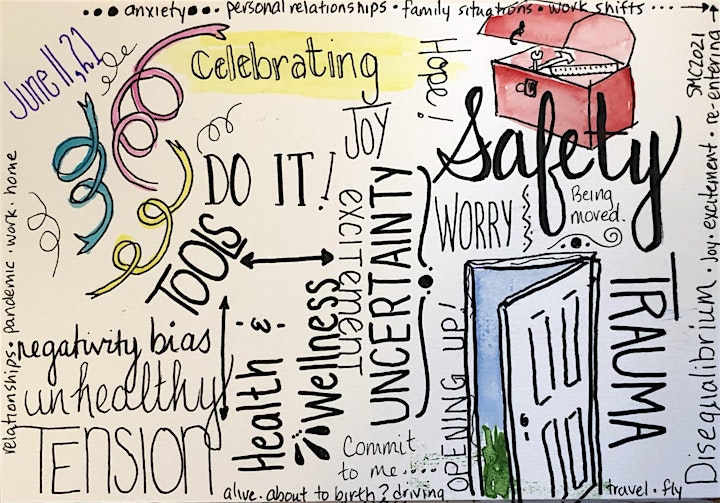 anxiety • personal relationships • family situations • work shifts
June 11, 21
Celebrating
Hope!
JOY
Safety
SMC2021
DO IT!
excitement
UNCERTAINTY
WORRY
Being
moved.
TOOLS
Health &
Wellness
OPENING UP!
TRAUMA
Disequalibrium • Joy • excitement • re-entering
relationships • pandemic • work • home
negativity bias
unhealthy
TENSION
Commit
to me....
alive • about to birth? driving
travel • fly